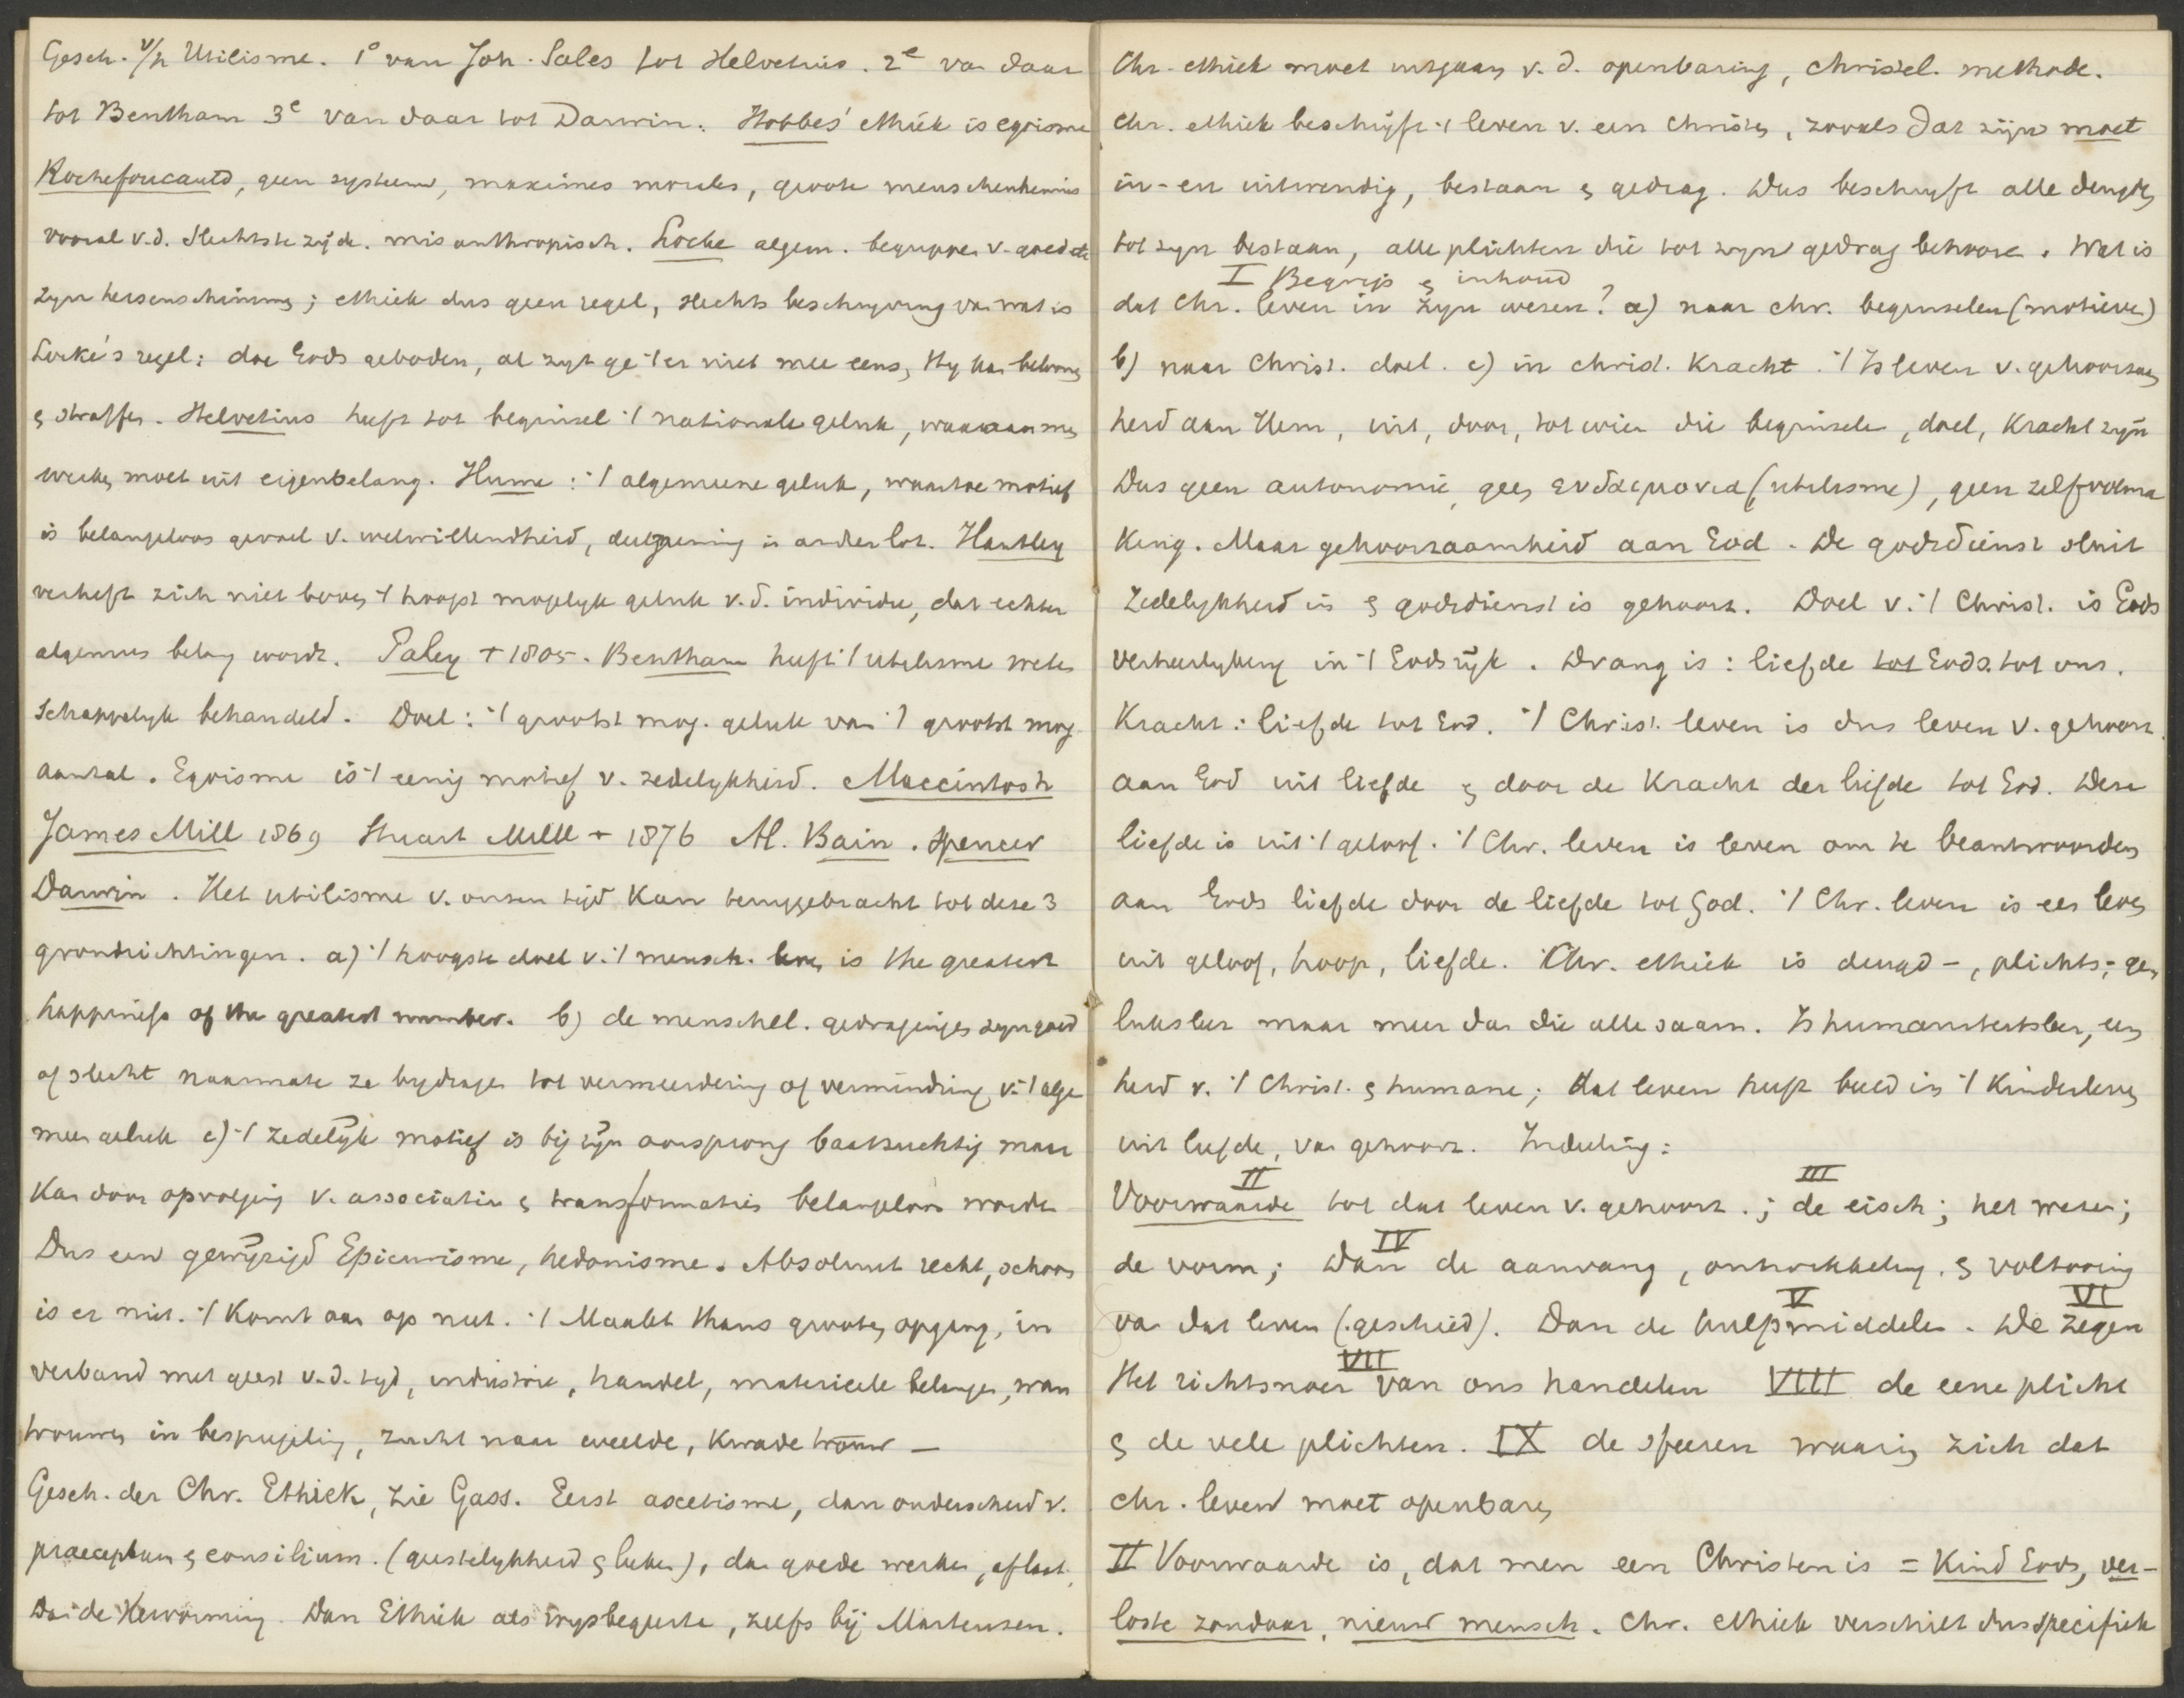 Gesch. v/h Utilisme. 1° van Joh. Sales tot Helvetius. 2e van daar
tot Bentham 3e van daar tot Darwin. Hobbes' ethiek is egoisme
Rochefoucauld, geen systeem, maximes morales, groote menschenkennis
vooral v.d. slechtste zijde. misanthropisch. Locke algem. begrippen v. goed etc
zijn hersenschimmig; ethiek dus geen regel, slechts beschrijving van wat is
Locke's regel: doe Gods geboden, al zijt ge 't er niet mee eens, Hij kan beloonen
& straffen. Helvetius heeft tot beginsel 't nationale geluk, waaraan men
werken moet uit eigenbelang. Hume: 't algemeene geluk, waartoe motief
is belangeloos gevoel v. welwillendheid, deelneming in ander lot. Hartley
verheft zich niet boven 't hoogst mogelijk geluk v.d. individu, dat echter
algemeen belang wordt. Paley + 1805. Bentham heeft 't utilisme weten
schappelijk behandeld. Doel: 't grootst mog. geluk van 't grootst mog.
aantal. Egoisme is 't eenig motief v. zedelijkheid. Maccintosh
James Mill 1869 Stuart Mill + 1876 Al. Bain. Spencer
Darwin. Het utilisme v. onzen tijd kan teruggebracht tot deze 3
grondrichtingen. a) 't hoogste doel v. 't mensch. leven is the greatest
happiness of the greatest number. b) de menschel. gedragingen zijn goed
of slecht naarmate ze bijdragen tot vermeerdering of vermindring v. 't alge
meen geluk c) 't zedelijk motief is bij zijn oorsprong baatzuchtig maar
kan door opvolging v. associatie & transformaties belangeloos worden
Dus een gewijzigd Epicurisme, hedonisme. Absoluut recht, schoon
is er niet. 't Komt aan op nut. 't Maakt thans grooten opgang, in
verband met geest v.d. tijd, industrie, handel, materieele belangen, wan
trouwen in bespiegeling, zucht naar weelde, kwade trouw —
Gesch. der Chr. Ethiek, zie Gass. Eerst ascetisme, dan onderscheid v.
praeceptum & consilium. (geestelijkheid & leken), dan goede werken, aflaat.
Dan de Hervorming. Dan Ethiek als wijsbegeerte, zelfs bij Martensen.
Chr. ethiek moet uitgaan v. d. openbaring, christel. methode.
Chr. ethiek beschrijft 't leven v. een christen, zooals dat zijn moet
in- en uitwendig, bestaan & gedrag. Dus beschrijft alle deugden
tot zijn bestaan, alle plichten die tot zijn gedrag behooren. Wat is
I Begrip & inhoud
dat Chr. leven in zijn wezen? a) naar chr. beginselen (motieven)
b) naar Christ. doel. c) in christ. kracht. 't Is leven v. gehoorzaam
heid aan Hem, uit, door, tot wien die beginselen, doel, kracht zijn
Dus geen autonomie, geen ευδαιμονια (utilisme), geen zelfvolma
king. Maar gehoorzaamheid aan God. De godsdienst sluit
zedelijkheid in & godsdienst is gehoorz. Doel v. 't Christ. is Gods
verheerlijking in 't Godsrijk. Drang is: liefde tot Gods tot ons.
Kracht: liefde tot God. 't Christ. leven is dus leven v. gehoorz.
aan God uit liefde & door de kracht der liefde tot God. Deze
liefde is uit 't geloof. 't Chr. leven is leven om te beantwoorden
aan Gods liefde door de liefde tot God. 't Chr. leven is een leven
uit geloof, hoop, liefde. Chr. ethiek is deugd-, plichts-, ge
luksleer maar meer dan die alle saam. Is humaniteitsleer, een
heid v. 't Christ. & humane; dat leven heeft beeld in 't kinderleven
uit liefde, van gehoorz. Indeeling:
II III
Voorwaarde tot dat leven v. gehoorz.; de eisch; het wezen;
IV
de vorm; Dan de aanvang, ontwikkeling & voltooiing
V VI
van dat leven (geschied). Dan de hulpmiddelen. De zegen
VII
Het richtsnoer van ons handelen VIII de eene plicht
& de vele plichten. IX de sfeeren waarin zich dat
chr. leven moet openbaren
II Voorwaarde is, dat men een Christen is = Kind Gods, ver-
loste zondaar, nieuw mensch. Chr. ethiek verschilt dus specifiek